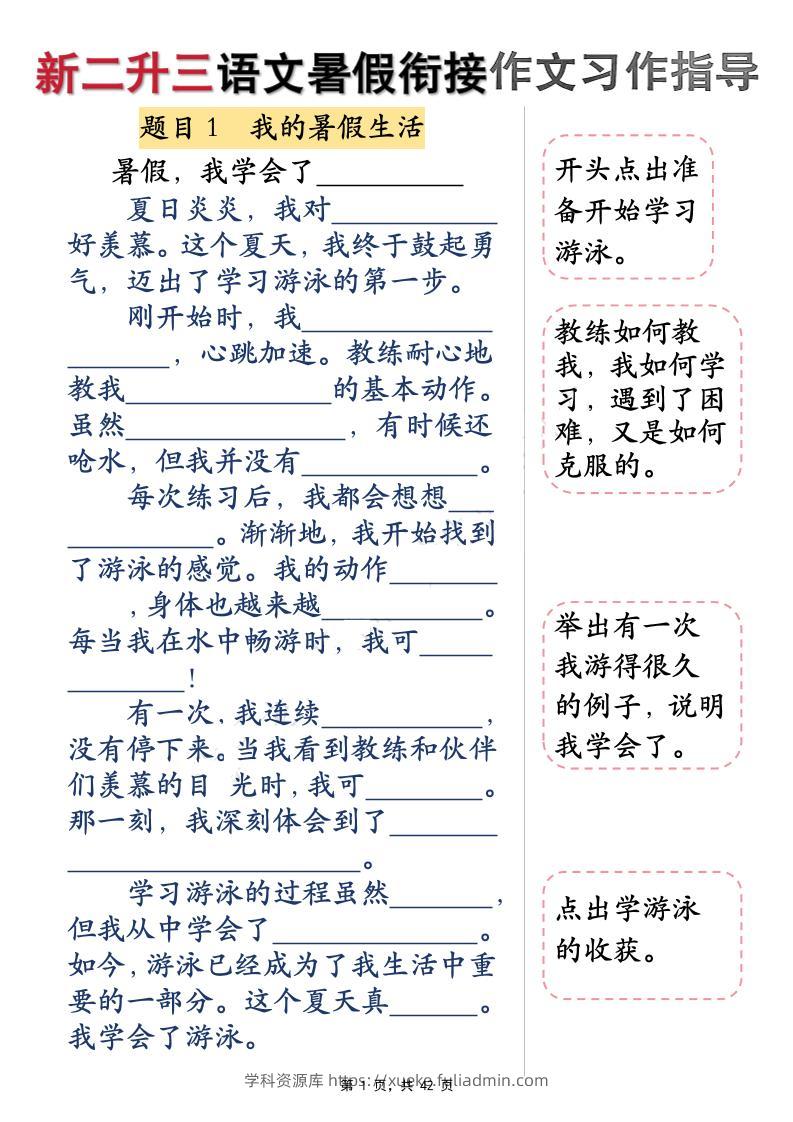 新二升三语文暑假衔接作文习作指导
题目1 我的暑假生活
暑假，我学会了__________
夏日炎炎，我对___________
好羡慕。这个夏天，我终于鼓起勇
气，迈出了学习游泳的第一步。
刚开始时，我_____________
_______，心跳加速。教练耐心地
教我______________的基本动作。
虽然_______________，有时候还
呛水，但我并没有____________。
每次练习后，我都会想想___
__________。渐渐地，我开始找到
了游泳的感觉。我的动作_______
，身体也越来越___________。
每当我在水中畅游时，我可_____
________！
有一次，我连续___________，
没有停下来。当我看到教练和伙伴
们羡慕的目 光时，我可________。
那一刻，我深刻体会到了_______
____________________。
学习游泳的过程虽然_______，
但我从中学会了______________。
如今，游泳已经成为了我生活中重
要的一部分。这个夏天真______。
我学会了游泳。
开头点出准
备开始学习
游泳。
教练如何教
我，我如何学
习，遇到了困
难，又是如何
克服的。
举出有一次
我游得很久
的例子，说明
我学会了。
点出学游泳
的收获。
学科资源库 https://xueke.fuliadmin.com
第 1 页，共 42 页